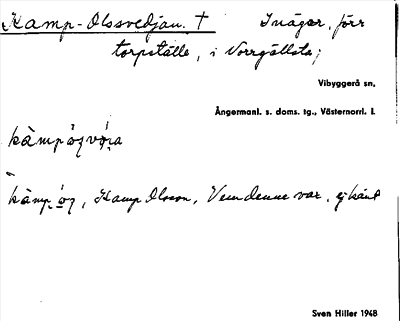 Kamp-Olssvedjan. † Inägor, förr
torpställe, i Norrgällsta;
Vibyggerå sn,
Ångermanl. s. doms. tg., Västernorrl. l.
kàmp
kàmp, Kamp Olsson, Vem denne var, ej känt
Sven Hiller 1948